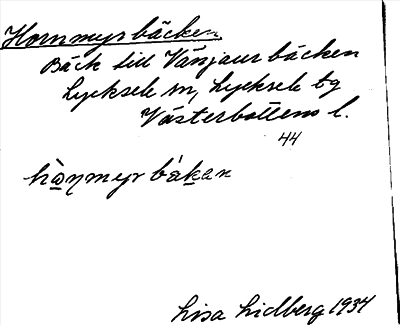 Hornmyrbäcken
Bäck till Vänjaurbäcken
Lycksele sn, Lycksele tg
Västerbottens l.
44
hòη̱myr báḵan
Lisa Lidberg 1934